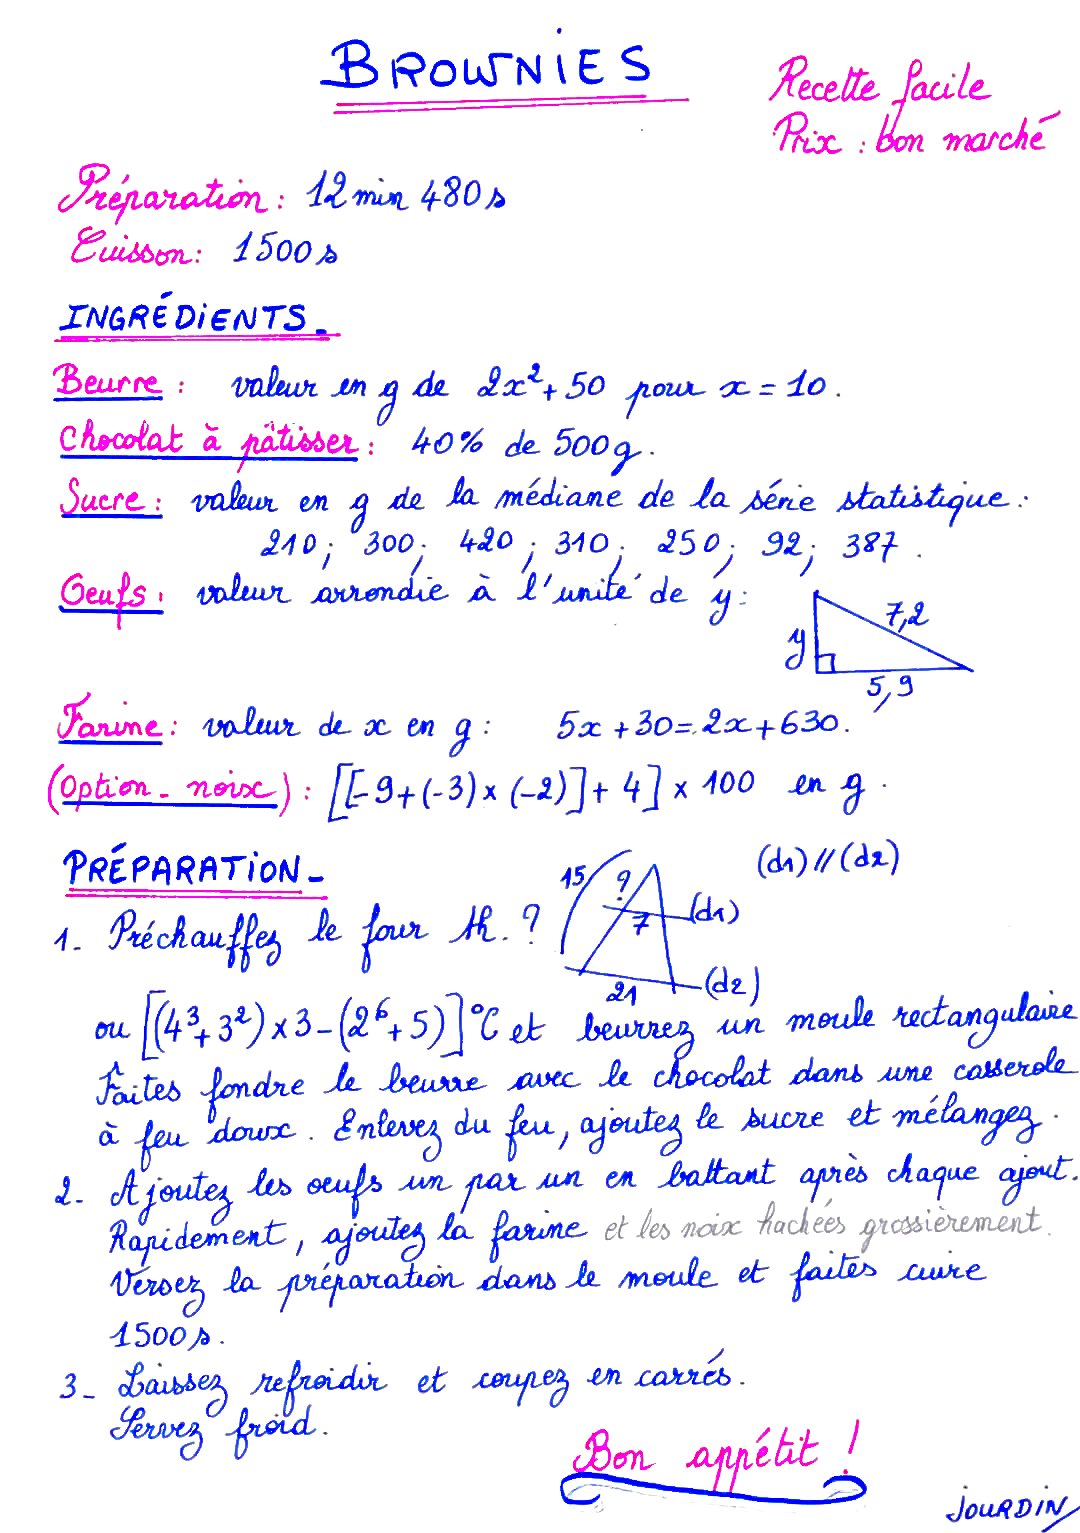 BROWNIES
Recette facile
Prix : bon marché
Préparation : 12 min 480 s
Cuisson : 1500 s
INGRÉDIENTS.
Beurre : valeur en g de 2x² + 50 pour x = 10.
Chocolat à pâtisser : 40% de 500g.
Sucre : valeur en g de la médiane de la série statistique :
210 ; 300 ; 420 ; 310 ; 250 ; 92 ; 387.
Oeufs : valeur arrondie à l'unité de y :
y 7,2
5,9
Farine : valeur de x en g : 5x + 30 = 2x + 630.
(Option - noix) : [[-9+(-3)×(-2)]+4]×100 en g.
PRÉPARATION -
15 ? (d1)//(d2)
1- Préchauffez le four th. ? 7 (d1)
21 (d2)
ou [(4³+3²)×3-(2⁶+5)]°C et beurrez un moule rectangulaire
Faîtes fondre le beurre avec le chocolat dans une casserole
à feu doux. Enlevez du feu, ajoutez le sucre et mélangez.
2- Ajoutez les oeufs un par un en battant après chaque ajout.
Rapidement, ajoutez la farine et les noix hachées grossièrement.
Versez la préparation dans le moule et faites cuire
1500 s.
3- Laissez refroidir et coupez en carrés.
Servez froid.
Bon appétit !
JOURDIN